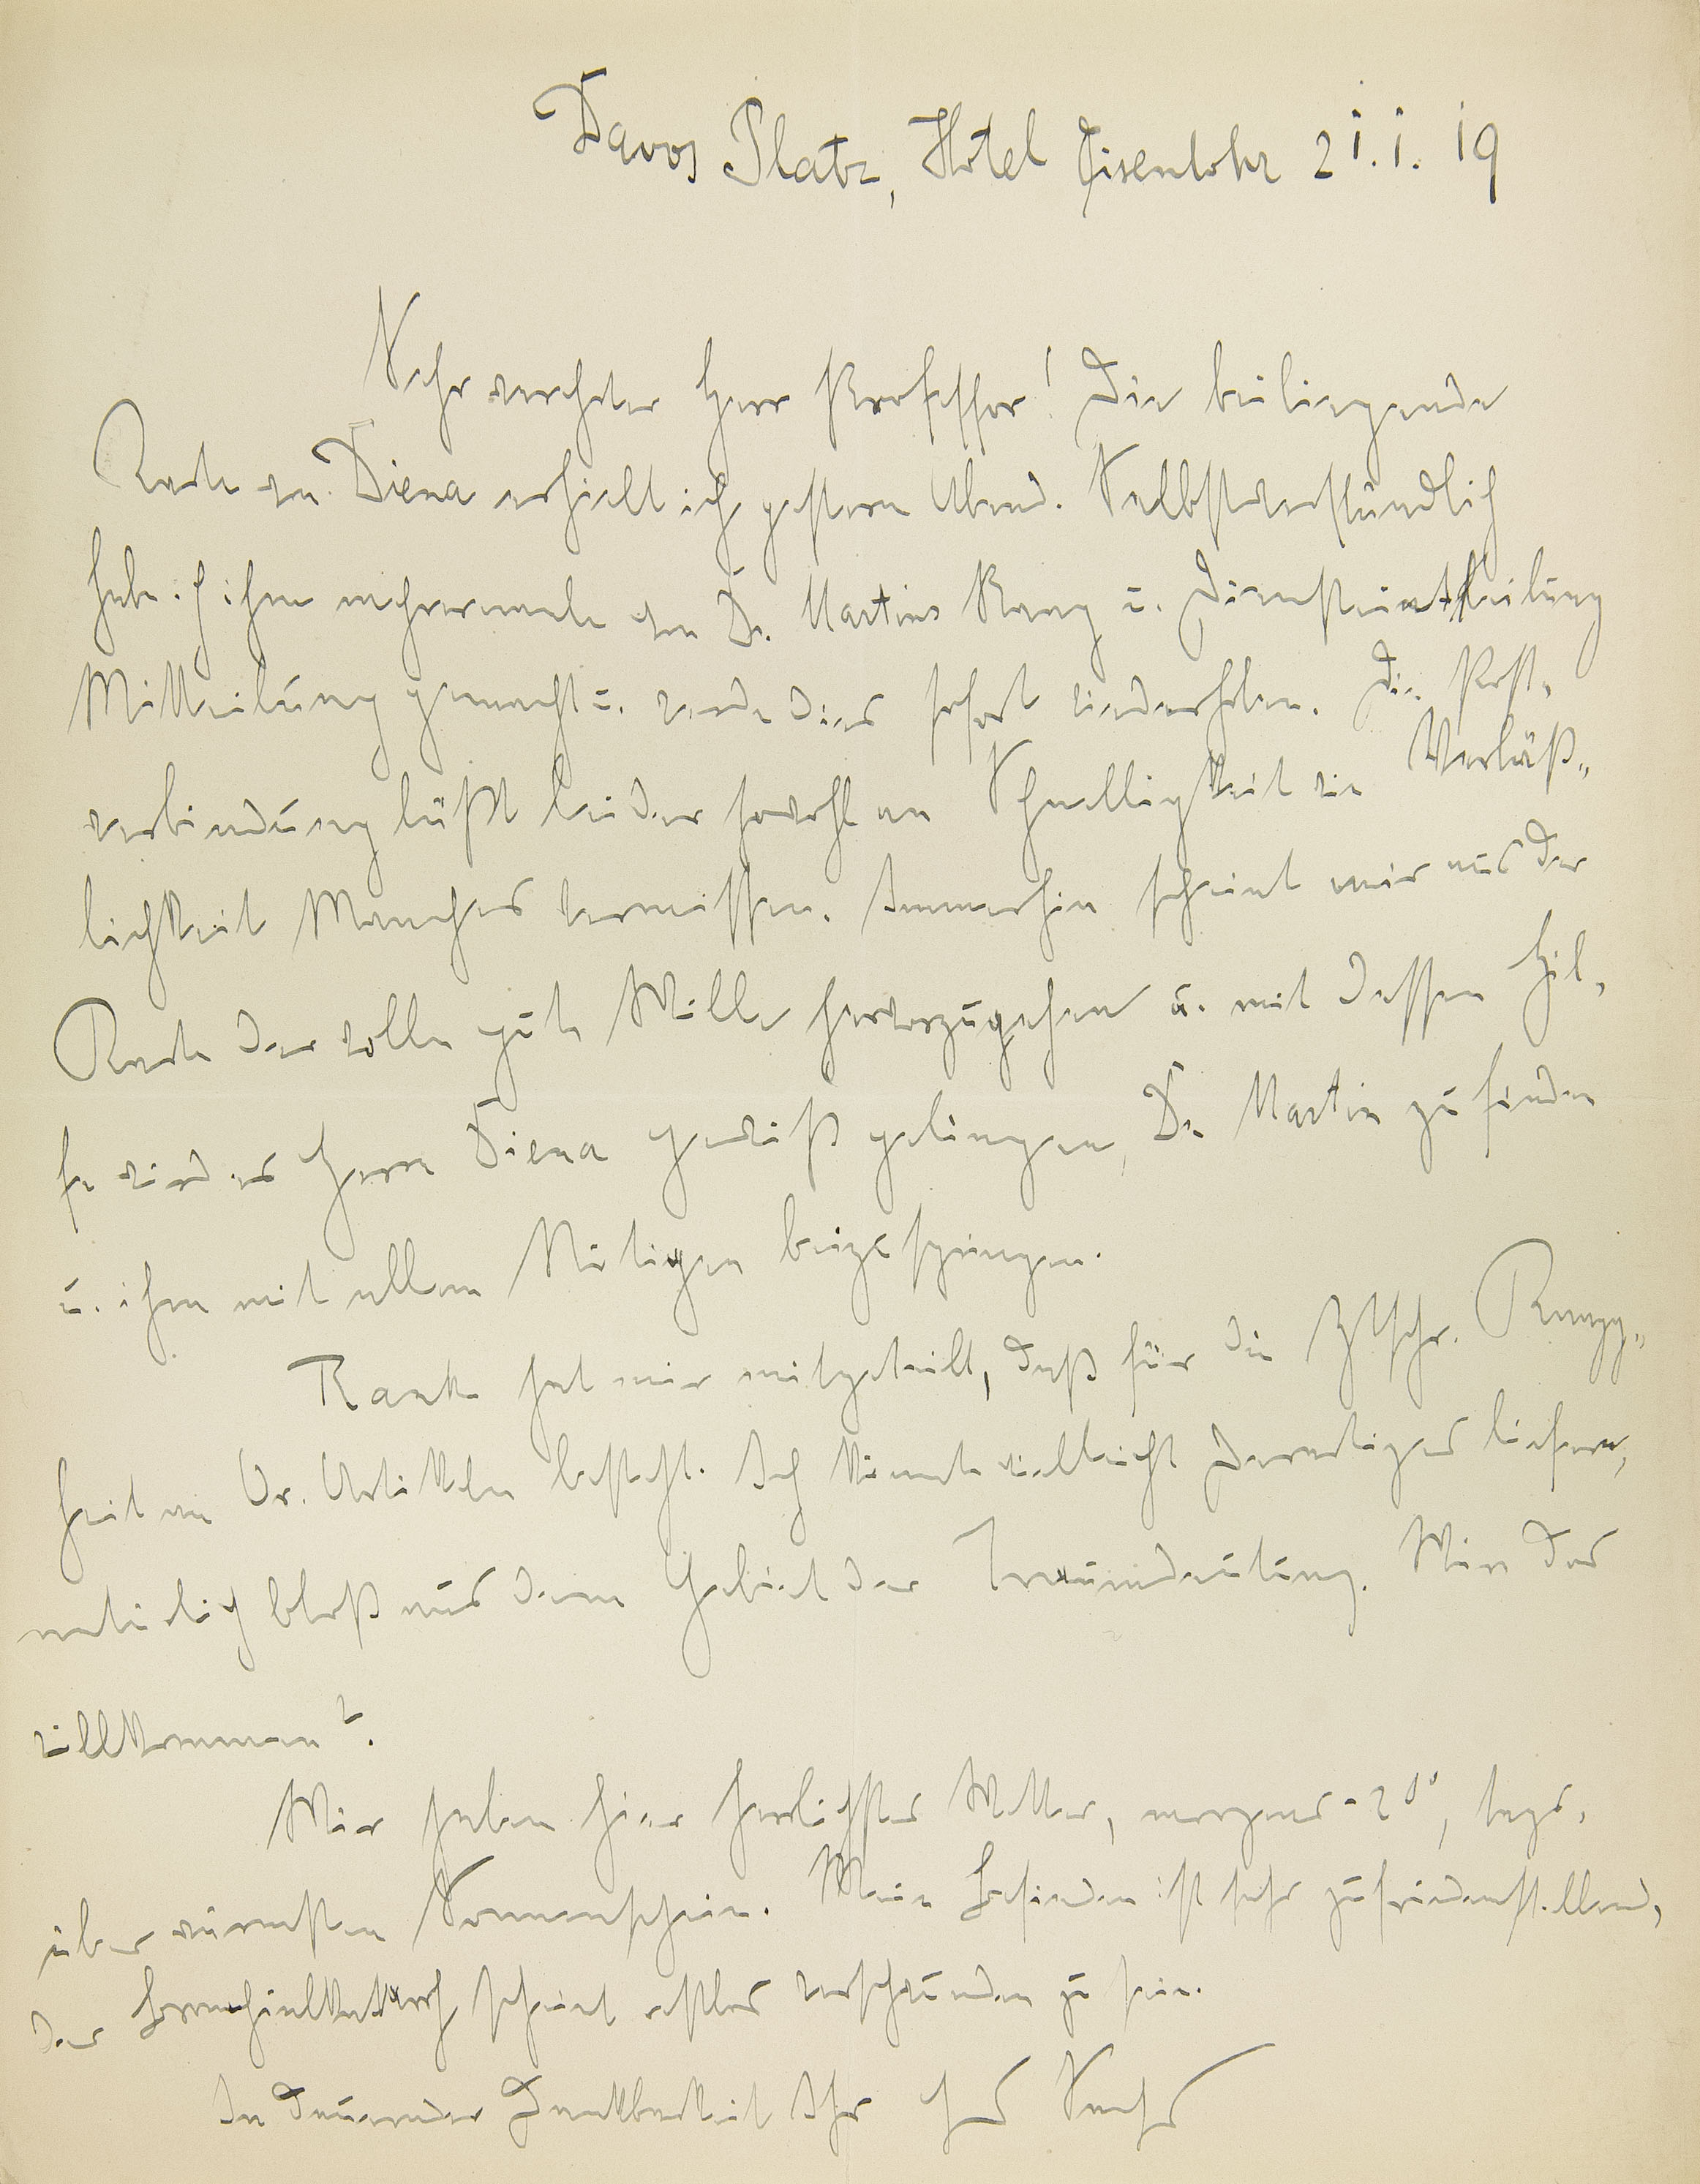 Davos Platz, Hotel Eisenlohr 21. I. 19
Sehr verehrter Herr Professor! Die beiliegende
Karte von Diena erhielt ich gestern Abend. Selbstverständlich
habe ich ihm mehrermale von Dr. Martins Rang u. Diensteinteilung
Mitteilung gemacht u. werde dies sofort wiederholen. Die Post-
verbindung läßt leider sowohl an Schnelligkeit wie Verläß-
lichkeit Manches vermissen. Immerhin scheint mir aus der
Karte der volle gute Wille hervorzugehen u. mit dessen Hil-
fe wird es Herrn Diena gewiß gelingen, Dr. Martin zu finden
u. ihm mit allem Nötigen beizuspringen.
Rank hat mir mitgeteilt, daß für die Ztschr. Knapp-
heit an Or. Artikeln besteht. Ich könnte vielleicht Derartiges liefern,
natürlich bloß aus dem Gebiet der Traumdeutung. Wäre das
willkommen?
Wir haben hier herrlichstes Wetter, morgens -20°, tags-
über wärmsten Sonnenschein. Mein Befinden ist sehr zufriedenstellend,
der Bronchialkatarrh scheint restlos verschwunden zu sein.
In dauernder Dankbarkeit Ihr Hanns Sachs